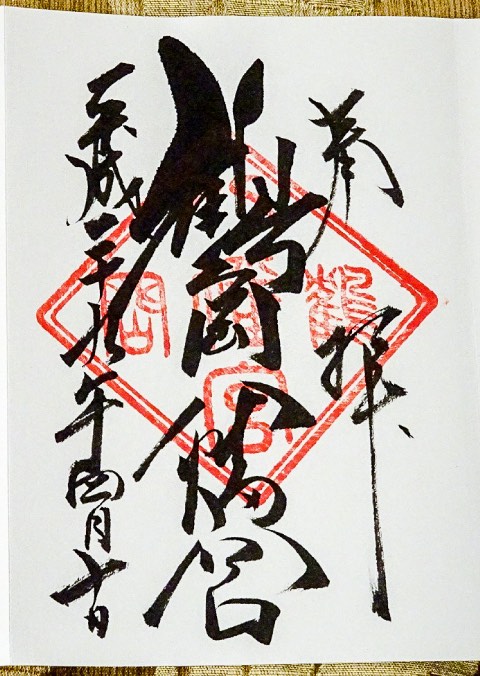 奉拝
鶴岡八幡宮
平成二十九年四月十日
鶴
岡
宮